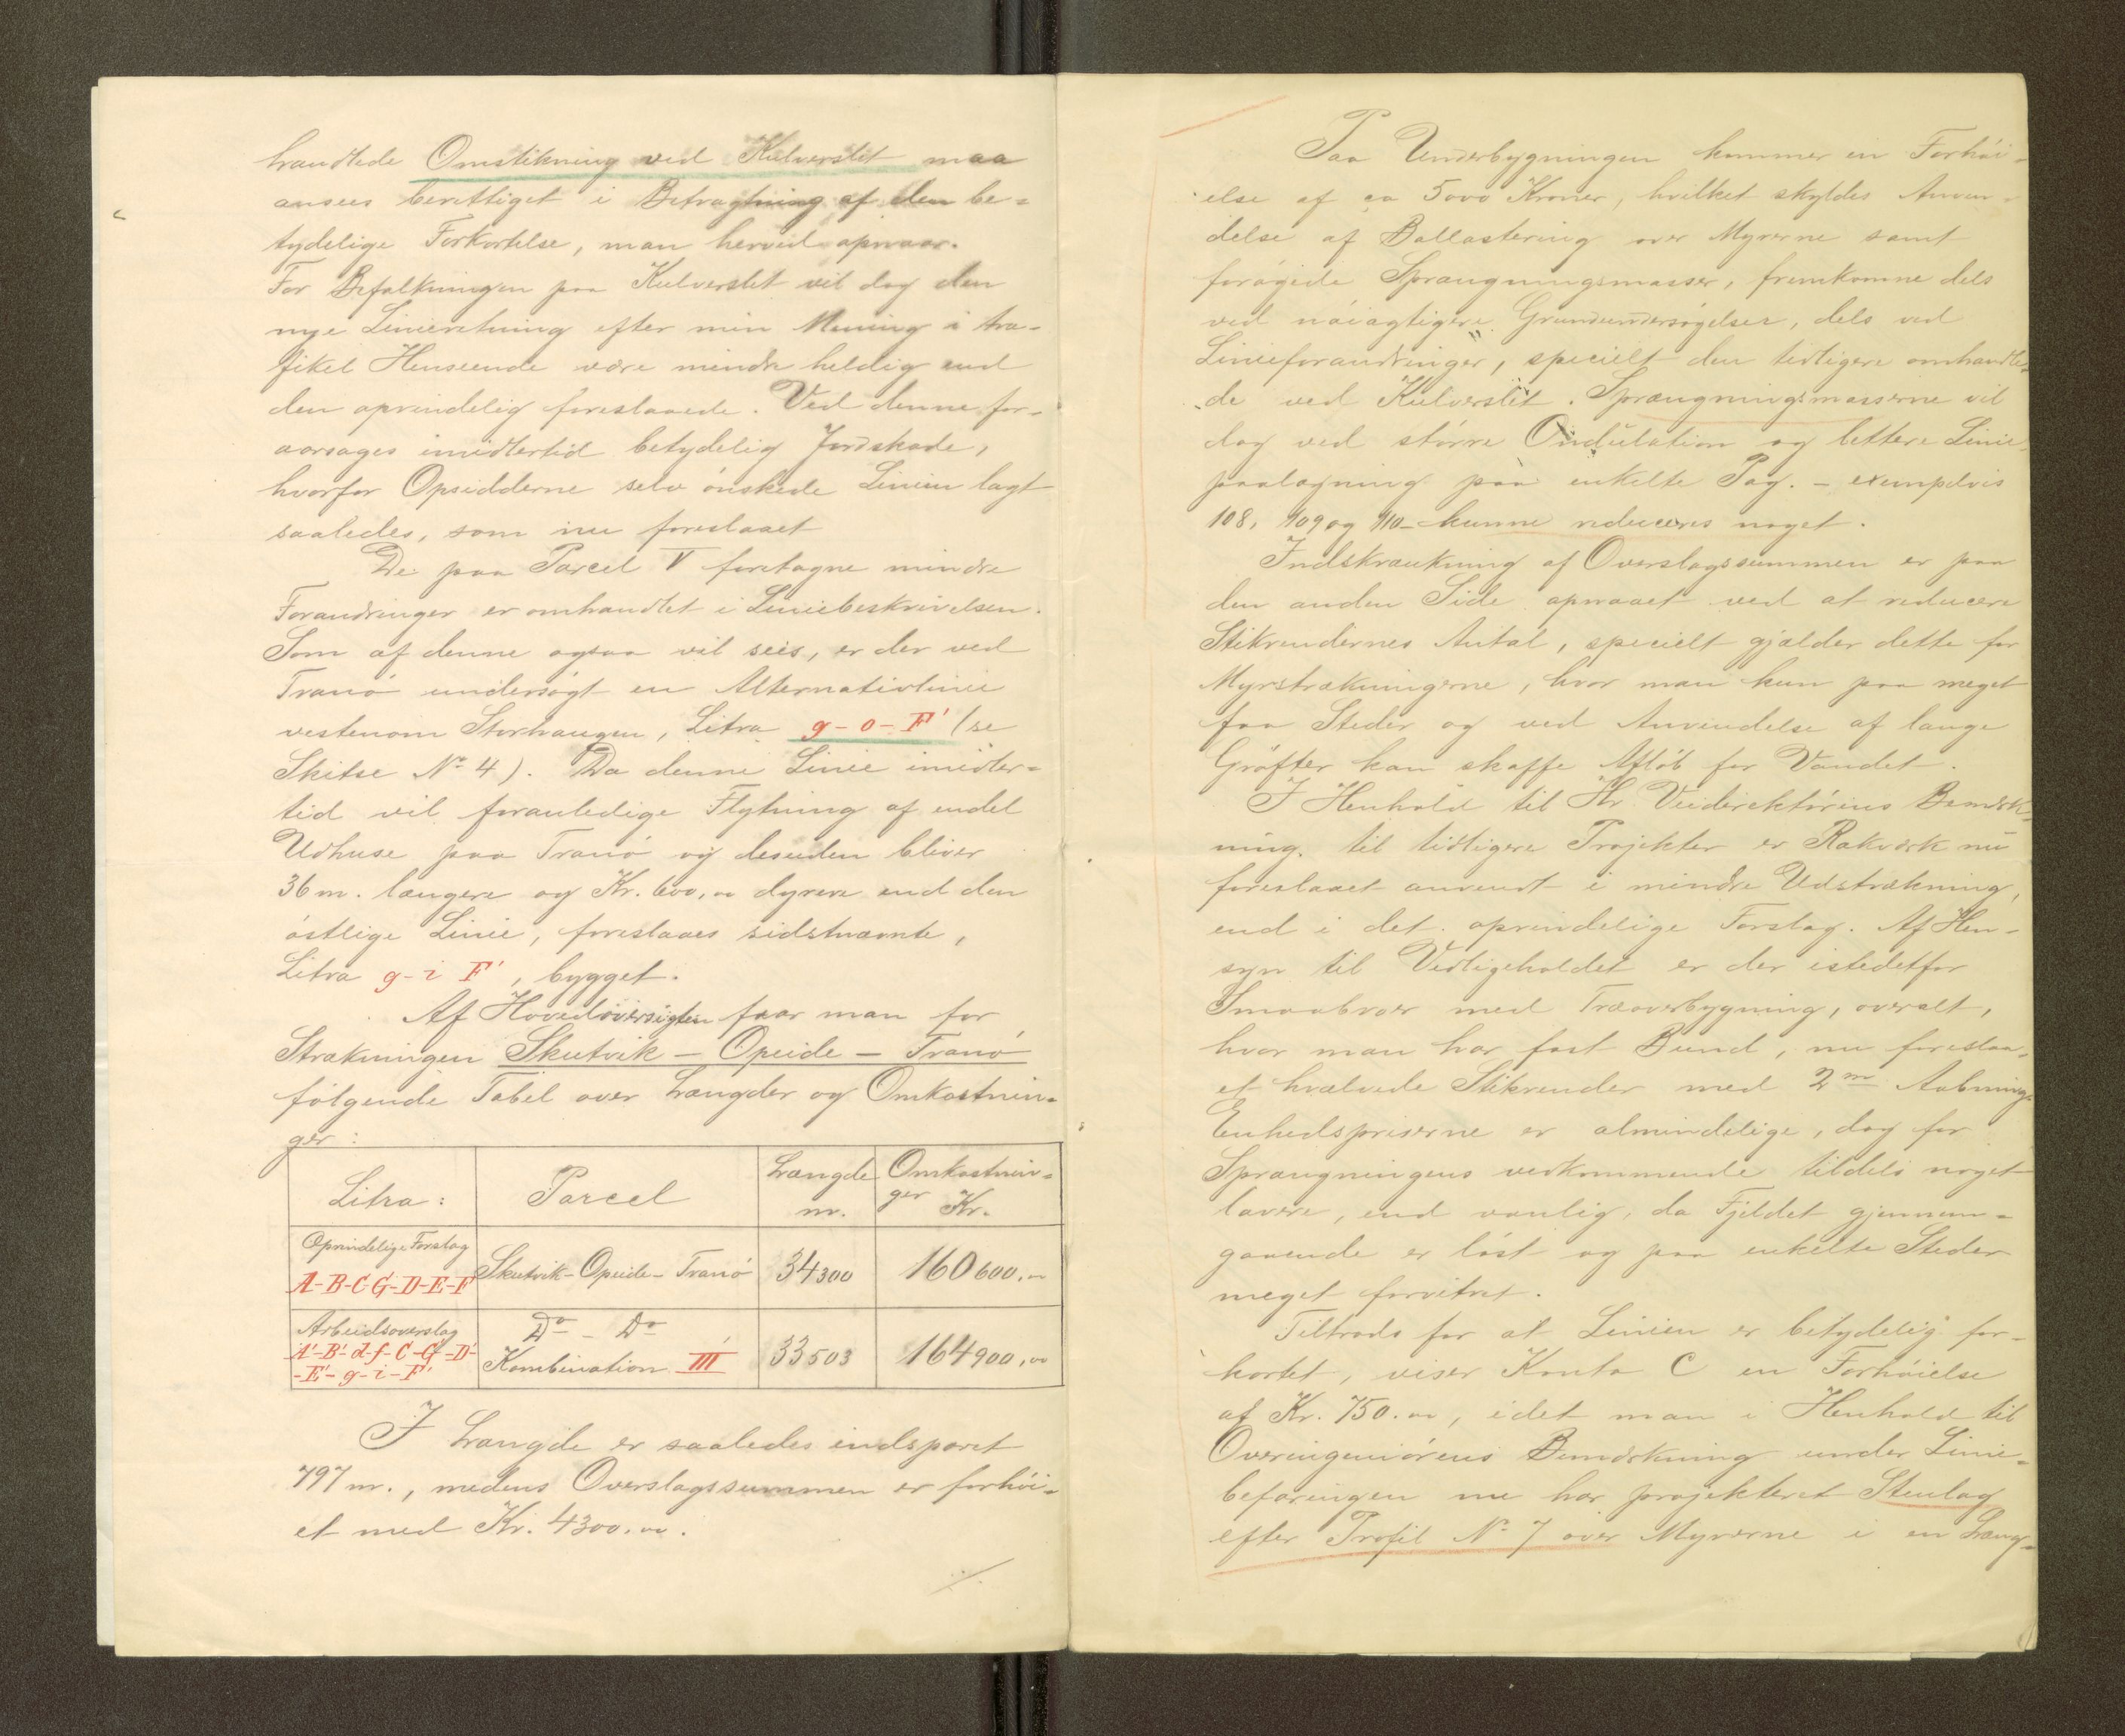 handlede Omstikning ved Kulverslet maa
ansees berettiget i Betragtning af den be-
tydelige Forkortelse, man herved opnaar.
For Befolkningen paa Kulverslet vil dog den
nye Linieretning efter min Mening i tra-
fikel Henseende være mindre heldig end
den oprindelig foreslaaede. Ved denne for-
aarsages imidlertid betydelig Jordskade,
hvorfor Opsidderne selv ønskede Linien lagt
saaledes, som nu foreslaaet
De paa Parcel V foretagne mindre
Forandringer er omhandlet i Liniebeskrivelsen.
Som af denne ogsaa vil sees, er der ved
Tranø undersøgt en Alternativlinie
vestenom Storhaugen, Litra g-o-F' (se
Skitse No 4). Da denne Linie imidler-
tid vil foranledige Flytning af endel
Udhuse paa Tranø og desuden bliver
36 m. længere og Kr. 600,00 dyrere end den
østlige Linie, foreslaaes sidstnævnte,
Litra g-i F', bygget.
Af Hovedoversigten faar man for
Strækningen Skutvik - Opeide - Tranø
følgende Tabel over Længder og Omkostnin-
ger:
Litra: Parcel Længde m. Omkostnin-ger Kr.
Oprindelige Forslag
A-B-C-G-D-E-F Skutvik-Opeide-Tranø 34300 160600,00
Arbeidsoverslag Do - Do
A'-B'-d-f-C'-G'-D'
-E'-g-i-F' Kombination III 33503 164900,00
I Længde er saaledes indsparet
797 m., medens Overslagssummen er forhøi-
et med Kr. 4300.00.
./.
Paa Underbygningen kommer en Forhøi-
else af ca 5000 Kroner, hvilket skyldes Anven-
delse af Ballastering over Myrerne samt
forøgede Sprængningsmasser, fremkomne dels
ved nøiagtigere Grundundersøgelser, dels ved
Linieforandringer, specielt den tidligere omhandle-
de ved Kulverslet. Sprængningsmasserne vil
dog ved større Ondulation og lettere Linie
paalægning paa enkelte Pag. - exempelvis
108, 109 og 110 - kunne reduceres noget.
Indskrænkning af Overslagssummen er paa
den anden Side opnaaet ved at reducere
Stikrendernes Antal, specielt gjælder dette for
Myrstrækningerne, hvor man kun paa meget
faa Steder og ved Anvendelse af lange
Grøfter kan skaffe Afløb for Vandet.
I Henhold til Hr. Veidirektørens Bemærk-
ning til tidligere Projekter er Rækværk nu
foreslaaet anvendt i mindre Udstrækning,
end i det oprindelige Forslag. Af Hen-
syn til Vedligeholdet er der istedetfor
Smaabroer med Træoverbygning, overalt,
hvor man har fast Bund, nu foreslaa-
et hvælvede Stikrender med 2 m Aabning.
Enhedspriserne er almindelige, dog for
Sprængningens vedkommende tildels noget
lavere, end vanlig, da Fjeldet gjennem-
gaaende er løst og paa enkelte Steder
meget forvitret.
Tiltrods for at Linien er betydelig for-
kortet, viser Konto C en Forhøielse
af Kr. 750.00, idet man i Henhold til
Overingeniørens Bemærkning under Linie-
befaringen nu har projekteret Stenlag
efter Profil No 7 over Myrerne i en Læng-